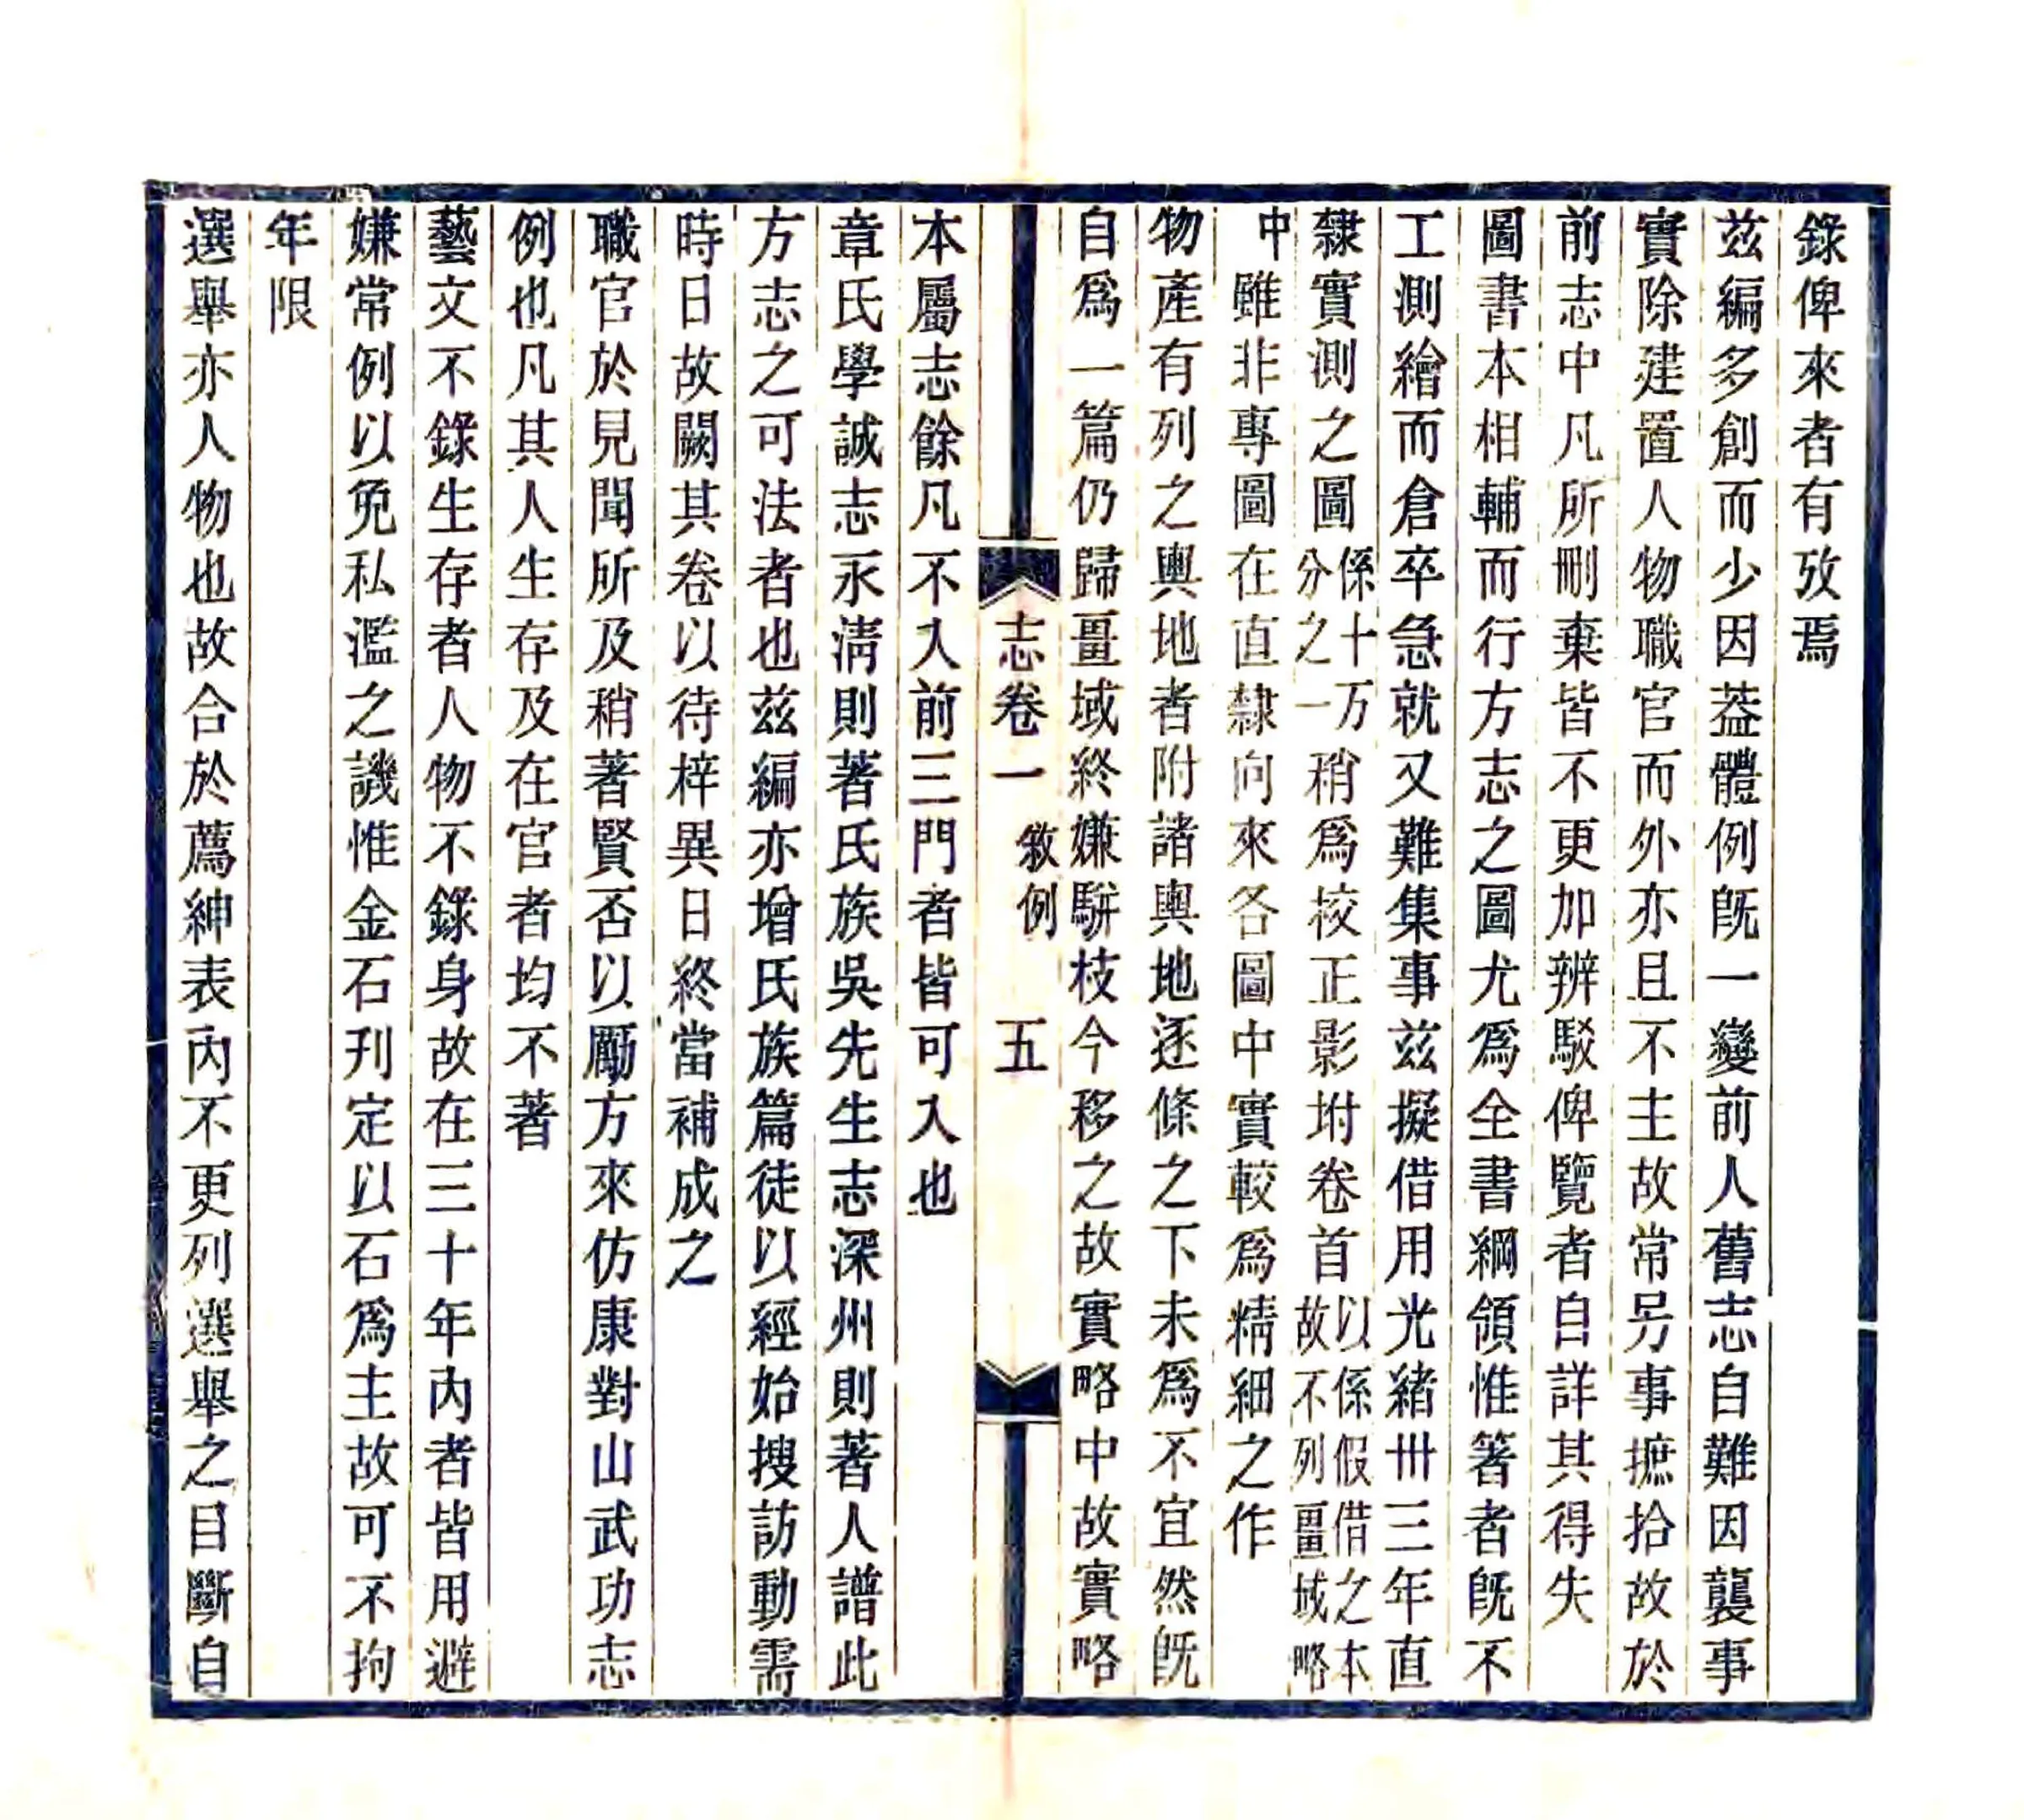 錄俾來者有攷焉
茲編多創而少因葢體例旣一變前人舊志自難因襲事
實除建置人物職官而外亦且不主故常另事摭拾故於
前志中凡所刪棄皆不更加辨駁俾覽者自詳其得失
圖書本相輔而行方志之圖尤爲全書綱領惟箸者旣不
工測繪而倉卒急就又難集事茲擬借用光緒卅三年直
隸實測之圖係十万分之一稍爲校正影坿卷首以係假借之本故不列畺域略
中雖非專圖在直隸向來各圖中實較爲精細之作
物產有列之輿地者附諸輿地逐條之下未爲不宜然旣
自爲一篇仍歸畺域終嫌駢枝今移之故實略中故實略
志卷一 敘例 五
本屬志餘凡不入前三門者皆可入也
章氏學誠志永淸則著氏族吳先生志深州則著人譜此
方志之可法者也茲編亦增氏族篇徒以經始搜訪動需
時日故闕其卷以待梓異日終當補成之
職官於見聞所及稍著賢否以勵方來仿康對山武功志
例也凡其人生存及在官者均不著
藝文不錄生存者人物不錄身故在三十年內者皆用避
嫌常例以免私濫之譏惟金石刋定以石爲主故可不拘
年限
選舉亦人物也故合於薦紳表內不更列選舉之目斷自